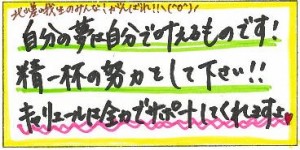 北の星の校生のみんな！がんばれ!!\(^o^)/
自分の夢は自分で叶えるものです！
精一杯の努力をして下さい!!
キャリエールは全力でサポートしてくれますよ♥